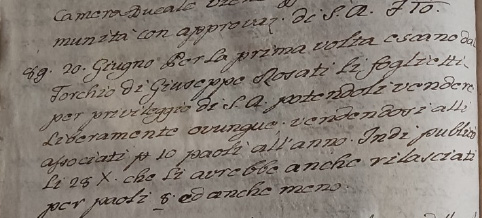 Camera Ducale
munità con approvaz. di S. A. Fto.
89. 20. Giugno Per la prima volta escano da
Torchio di Giuseppe Rosati li foglietti
per privileggio di S. A. potendoli vendere
liberamente ovunque. vendendosi alli
associati p 10 paoli all'anno. Indi publicò
li 28 X. che li avrebbe anche rilasciati
per paoli 8 ed anche meno.